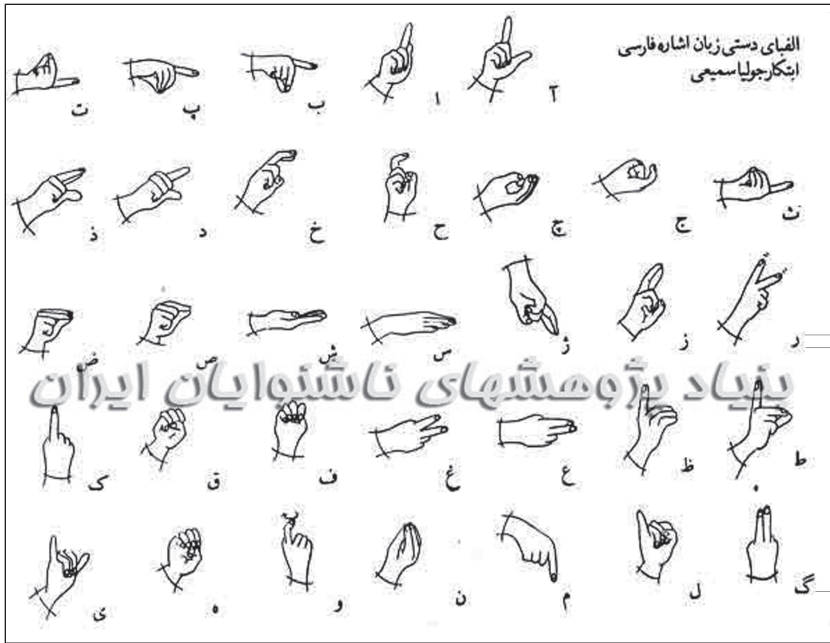 الفبای دستی زبان اشاره فارسی
ابتکار جولیا سمیعی
آ ا ب پ ت
ث ج چ ح خ د ذ
ر ز ژ س ش ص ض
بنیاد پژوهشهای ناشنوایان ایران
ط ظ ع غ ف ق ک
گ ل م ن و ه ی